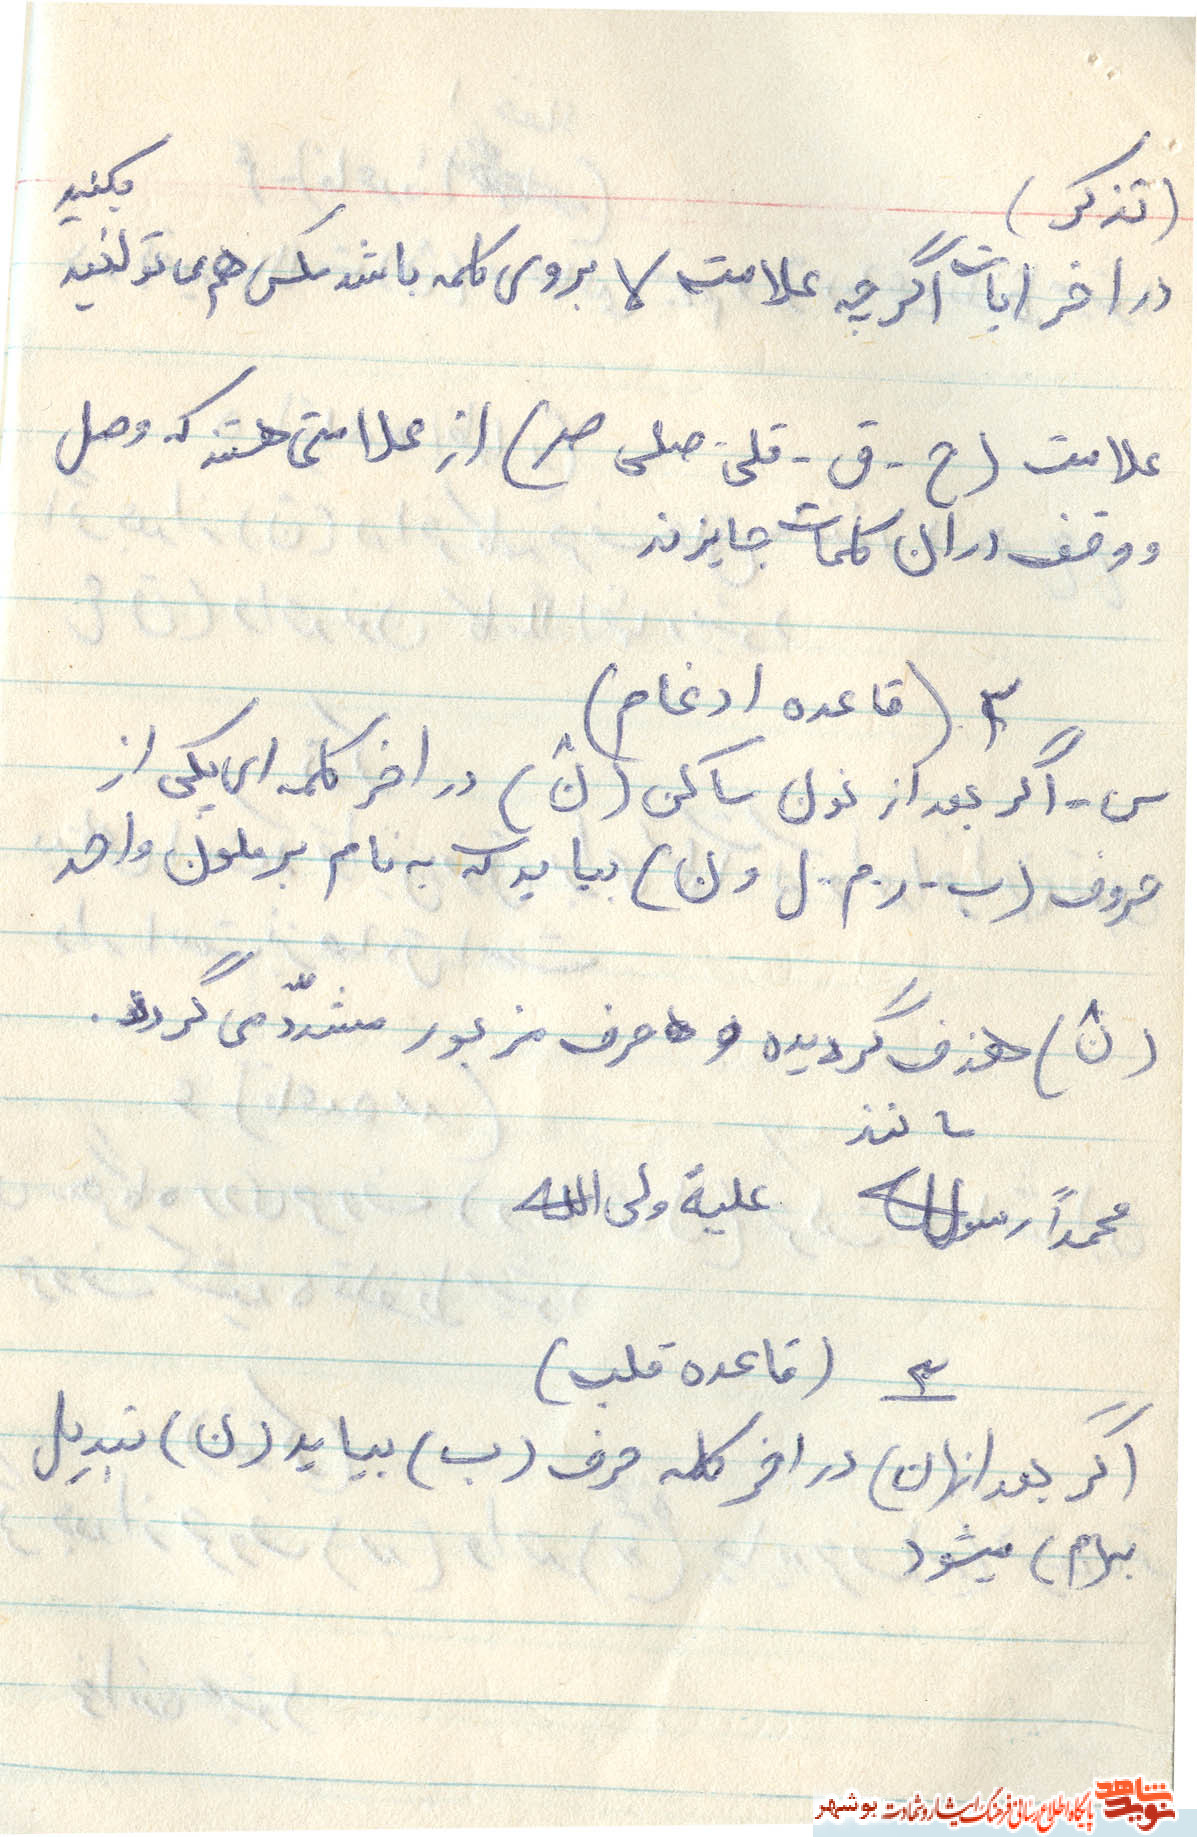 (تذکر)
بکنید
در اخر ایات اگر چه علامت لا بروی کلمه باشد مکس هم می توانید
علامت (ج - ق - قلی - صلی صم) از علامتی هستند که وصل
و وقف در ان کلمات جایزند
۲ (قاعده ادغام)
س - اگر بعد از نون ساکن (نْ) در اخر کلمه ای یکی از
حروف (ی - ر . م . ل و ن) بیاید که به نام یرملون واحد
(نْ) هذف گردیده و حرف مزبور مشدّد می گردد.
مانند
محمداً رسول الله علیة ولی الله
۳ (قاعده قلب)
اگر بعد از (ن) در اخر کلمه حرف (ب) بیاید (ن) تبدیل
به (م) میشود
نوید شاهد
پایگاه اطلاع رسانی فرهنگ ایثار و شهادت بوشهر